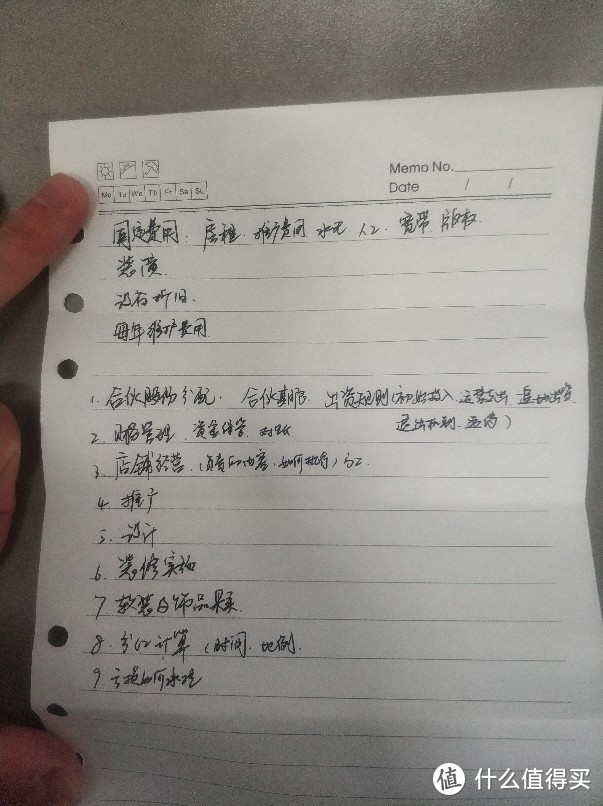 Memo No.
Mo Tu We Th Fr Sa Su
Date / /
固定费用: 房租. 维护费用 水电 人工 宽带. 版权.
装潢
设存折旧.
每年维护费用
1. 合伙股份分配. 合伙期限. 出资规则(初始投入. 运营支出 追加出资
退出机制. 违约)
2. 财务管理. 资金保管. 对账
3. 店铺经营. (负责的内容, 如何执行) 分工
4. 推广
5. 设计
6. 装修实施
7. 软装&饰品采系
8. 分红计算 (时间. 比例.
9. 亏损如何
值 什么值得买